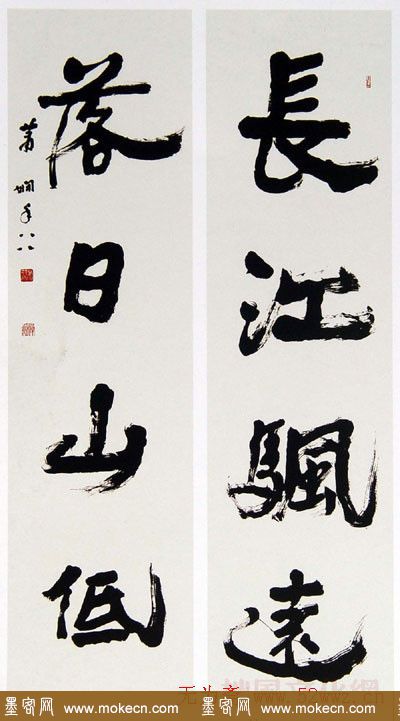 長江颿遠
落日山低
蕭嫻年八八
墨客网 www.mokecn.com
墨客网 www.mokecn.com